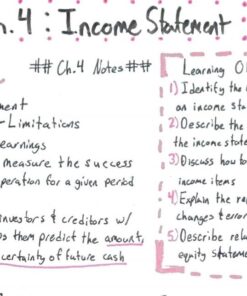 h.4 : Income Statement
## Ch.4 Notes##
ment
- Limitations
earnings
measure the success
peration for a given period
investors & creditors w/
ps them predict the amount,
certainty of future cash
Learning O
1) Identify the
an income sta
2) Describe the
the income state
3) Discuss how to
income items
4) Explain the re
changes & error
5) Describe rela
equity stateme